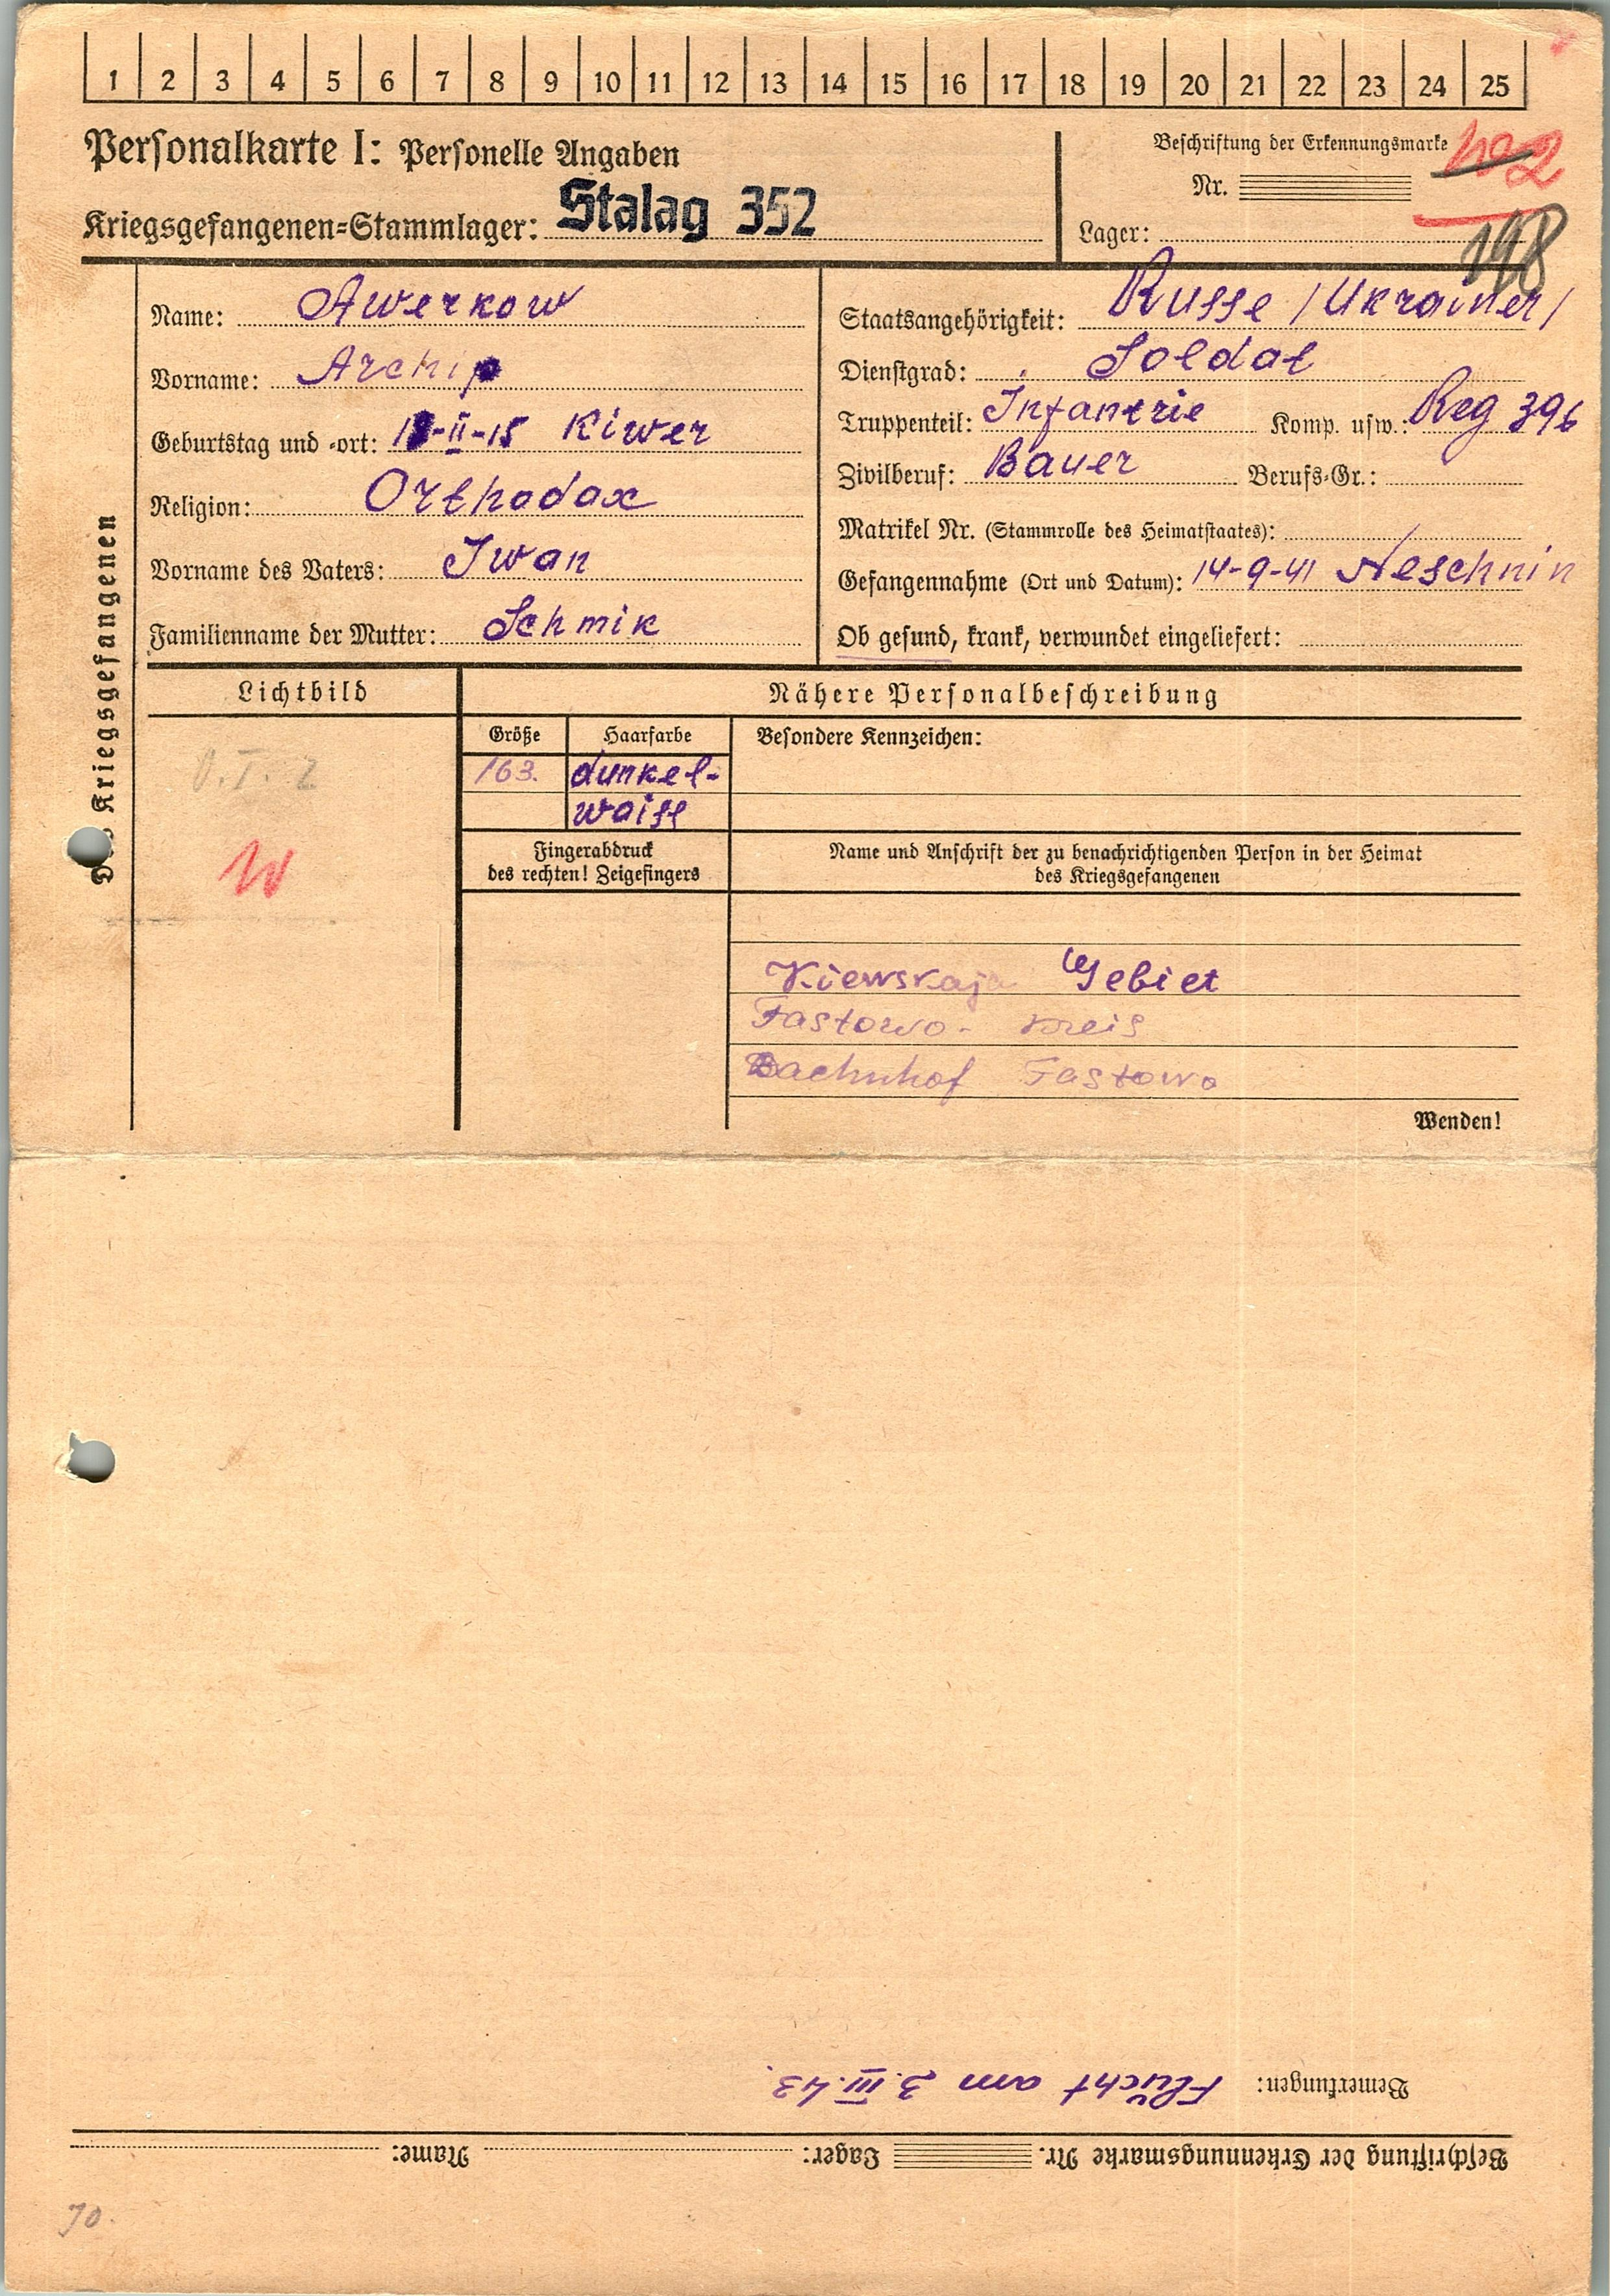 1 2 3 4 5 6 7 8 9 10 11 12 13 14 15 16 17 18 19 20 21 22 23 24 25
Personalkarte I: Personelle Angaben
Kriegsgefangenen-Stammlager: Stalag 352
Beschriftung der Erkennungsmarke
Nr.
Lager:
198
Des Kriegsgefangenen
Name: Awerkow
Vorname: Archip
Geburtstag und -ort: -II-15 Kiwer
Religion: Orthodox
Vorname des Vaters: Iwan
Familienname der Mutter: Schmik
Staatsangehörigkeit: Russe /Ukrainer/
Dienstgrad: Soldat
Truppenteil: Infantrie Komp. usw.: Reg 396
Zivilberuf: Bauer Berufs-Gr.:
Matrikel Nr. (Stammrolle des Heimatstaates):
Gefangennahme (Ort und Datum): 14-9-41 Neschnin
Ob gesund, krank, verwundet eingeliefert:
Lichtbild
W
Nähere Personalbeschreibung
Größe Haarfarbe Besondere Kennzeichen:
163. dunkel-
waiss
Fingerabdruck
des rechten! Zeigefingers
Name und Anschrift der zu benachrichtigenden Person in der Heimat
des Kriegsgefangenen
Kiewskaja Gebiet
Fastowo- Kreis
Bachnhof Fastowo
Wenden!
Bemerkungen: Flücht am 3.III.43.
Beschriftung der Erkennungsmarke Nr. Lager: Name:
70.